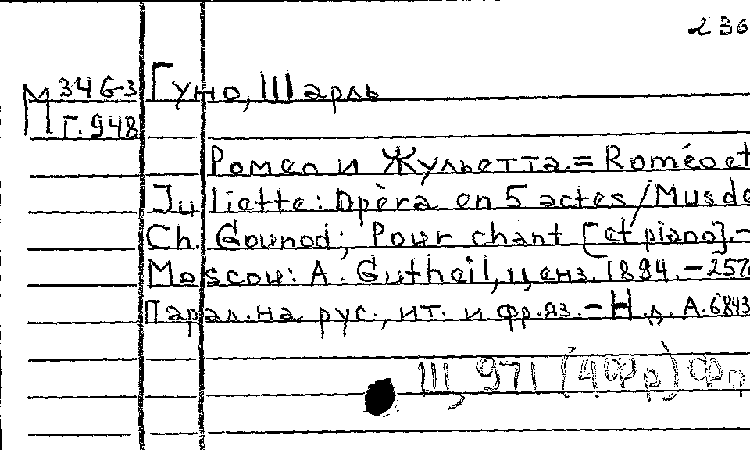 236
М 346-3
Г.948
Гуно, Шарль
Ромео и Жульетта.=Roméo et
Juliette: Opèra en 5 actes/Mus de
Ch. Gounod; Pour chant [et piano].-
Moscou: A. Gutheil, ценз. 1894.-257
Парал. на рус., ит. и фр. яз.-Н.д. А.6843
Ш, 971 (4Фр) Фп